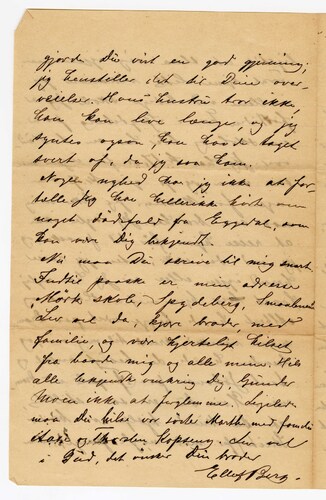 gjorde Du vist en god gjerning;
jeg henstiller det til Dine over-
veielser. Hans hustru tror ikke,
han kan leve længe, og jeg
syntes ogsaa, han havde taget
svert af, da jeg saa ham.
Nogen nyhed har jeg ikke at for-
tælle. Jeg har hellerikke hørt om
noget dødsfald fra Eggedal, som
kan være Dig bekjendt.
Nu maa Du skrive til mig snart.
Indtil paaske er min adresse
Mørk skole, Spydeberg, Smaalenene
Lev vel da, kjære broder, med
familie, og vær hjerteligt hilset
fra baade mig og alle mine. Hils
alle bekjendte omkring Dig, Gunder
Moen ikke at forglemme. Ligeledes
maa Du hilse vor søster Marthe med familie
og Thorsten Kopseng. Lev vel
i Gud, det ønsker Din broder
Ellef Berg.